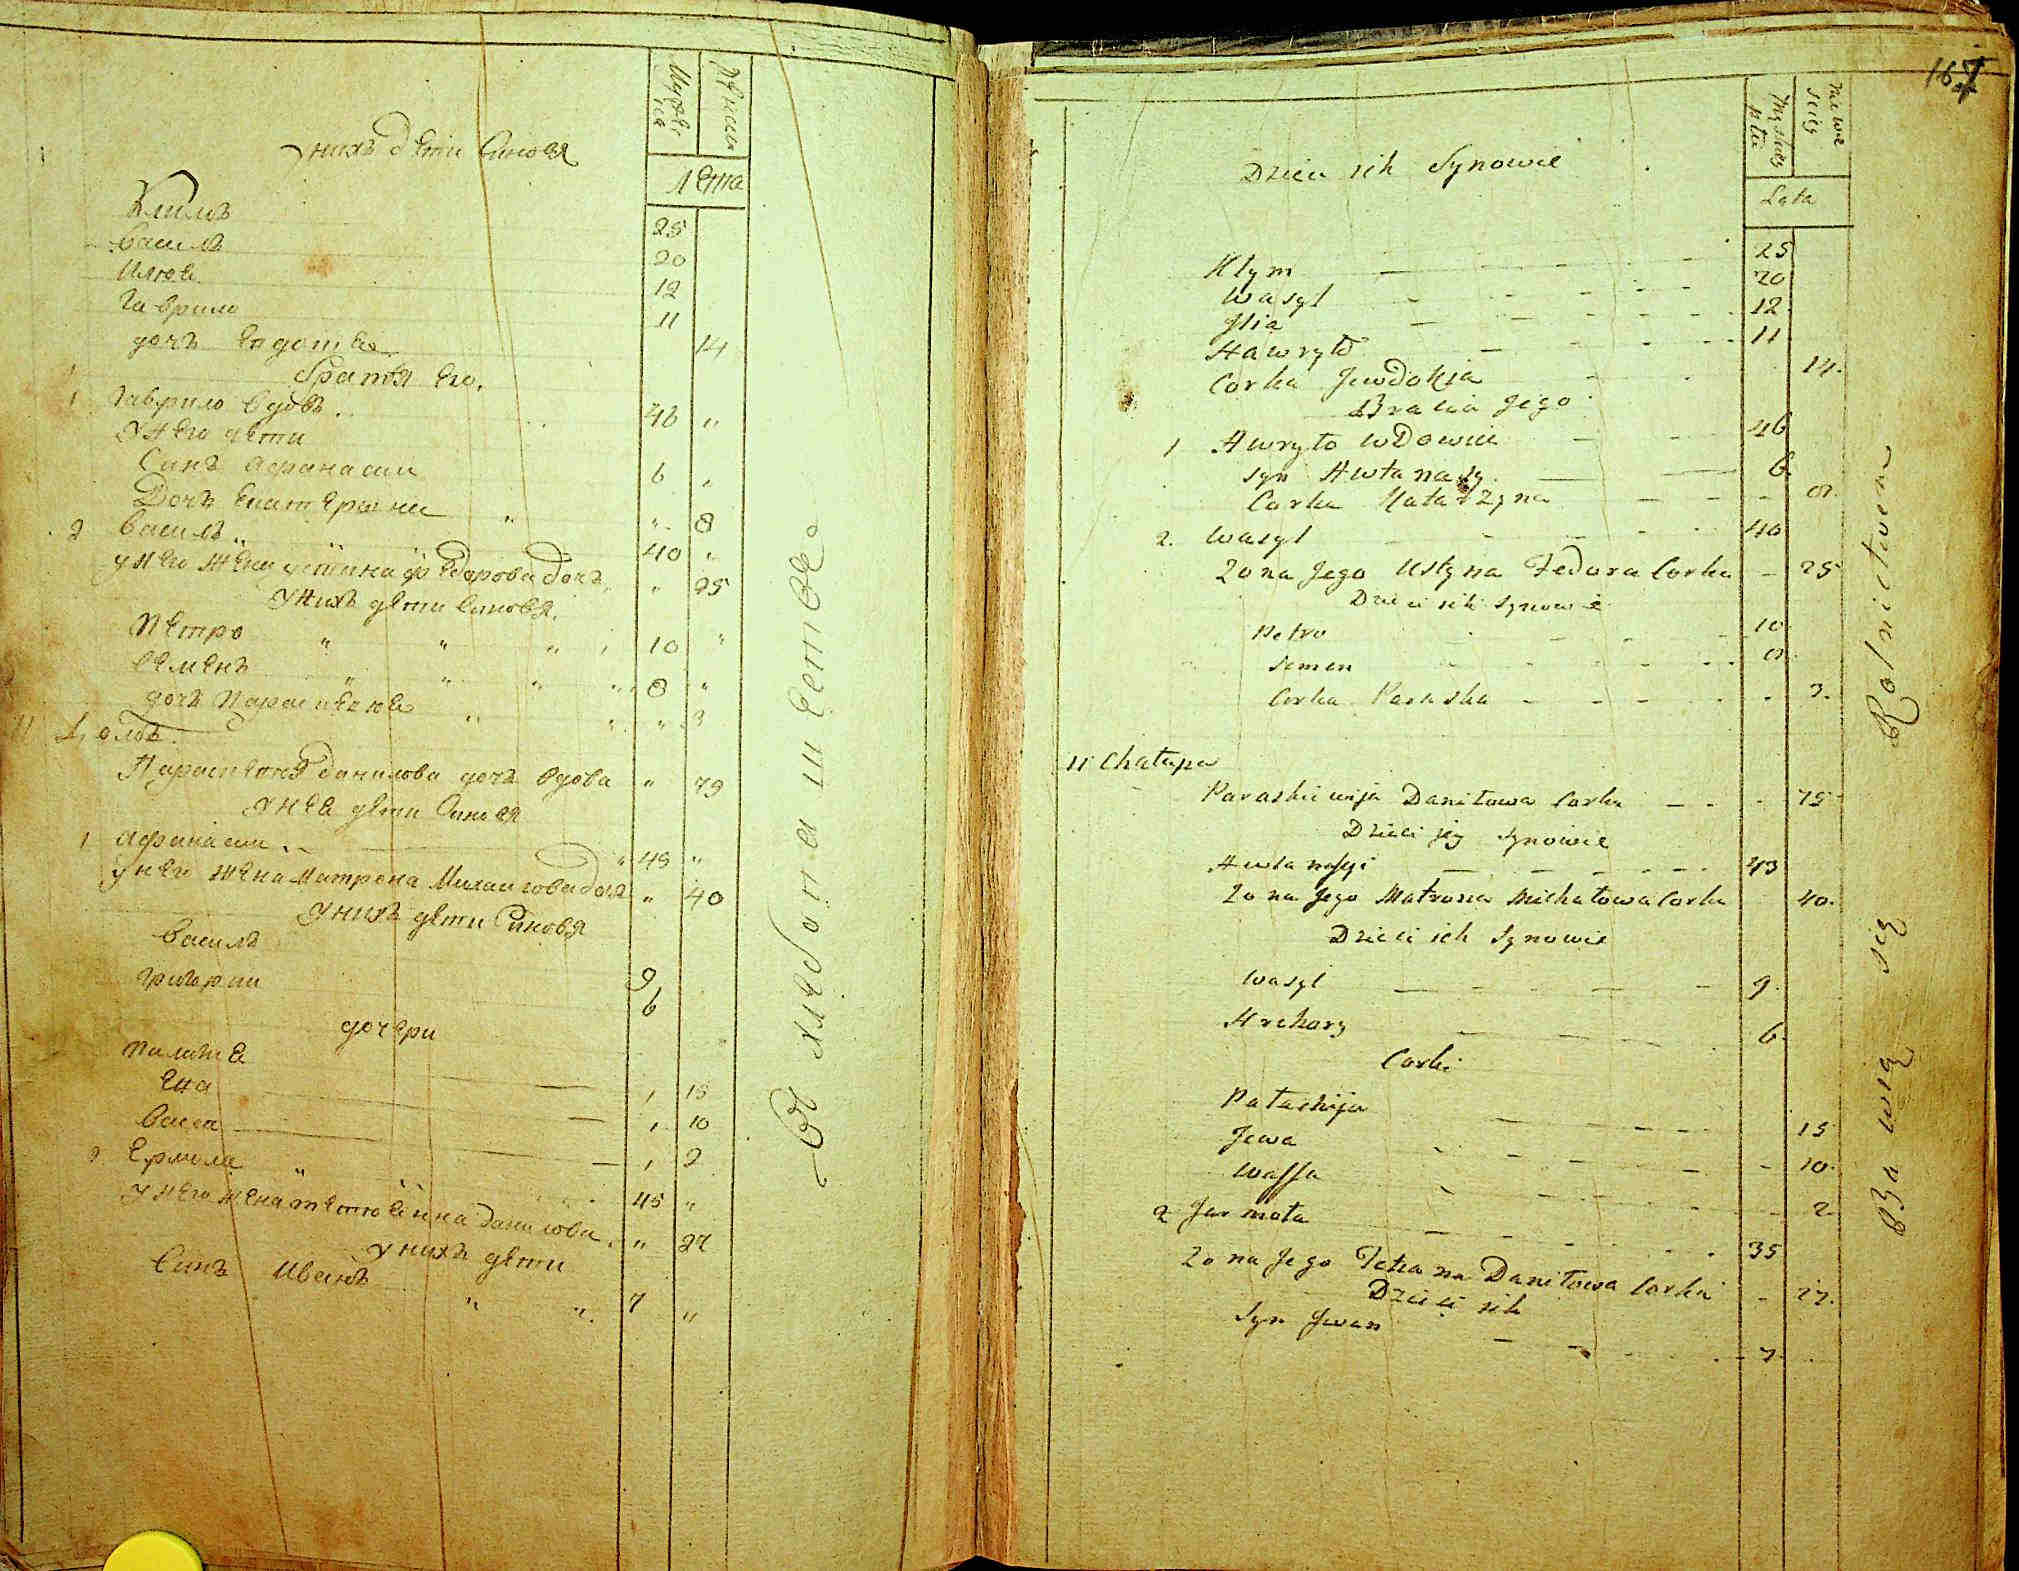 Мужеска
Женски
Лета
У нихъ дети Синовя
Климъ 25
Василь 20
Илия 12
Гаврило 11
дочъ Евдотия 14
братья его.
1 Гаврило вдовъ. 46 "
У него дети
Синъ Афанасии 6 "
Дочъ Екатерина " " 8
2 Василь " 40 "
у него жена устина федорова дочъ " 25
У нихъ дети Синовя.
Петро " " " 10 "
Семенъ " " " 8 "
дочъ Параскевия " " " 3
11
Параскевия данилова дочъ вдова " 79
У нея дети Синовя
1 Афанасии " 43 "
у него жена Матрена Михаилова дочъ " 40
У нихъ дети Синовя
Василь 9
Григории 6
дочери
Палагия 15
Ева 10
Васса 2
2 Ермола " 45 "
у него жена Данилова " 27
у нихъ дети
Синъ Иванъ " " 7 "
въ хлебопашестве
167
Męskiey płci
Lata
Dzieci ich Synowie
Kłym 25
Wasyl 20
Jlia 12
Hawryło 11
Corka Jewdokia 14.
Bracia Jego
1 Hawryło wdowiec 46
syn Awtanasy 6
Corka Katarzyna 8.
2. Wasyl 40
Zona Jego Ustyna Fedora Corka 25
Dzieci ich Synowie
Petro 10
Semen 8
Corka Paraska 3.
11 Chałupa
Paraskiewija Daniłowa Corka 75
Dzieci jey Synowie
Awtanasyi 43
Zona Jego Matrona Michałowa Corka 40.
Dzieci ich Synowie
Wasyl 9.
Hrehory 6.
Corki
Pałachija 15
Jewa 10.
Wassa 2.
2 Jarmoła 35
Zona Jego Tetiana Daniłowa Corka 27.
Dzieci ich
Syn Jwan 7.
Bawią się Rolnictwem